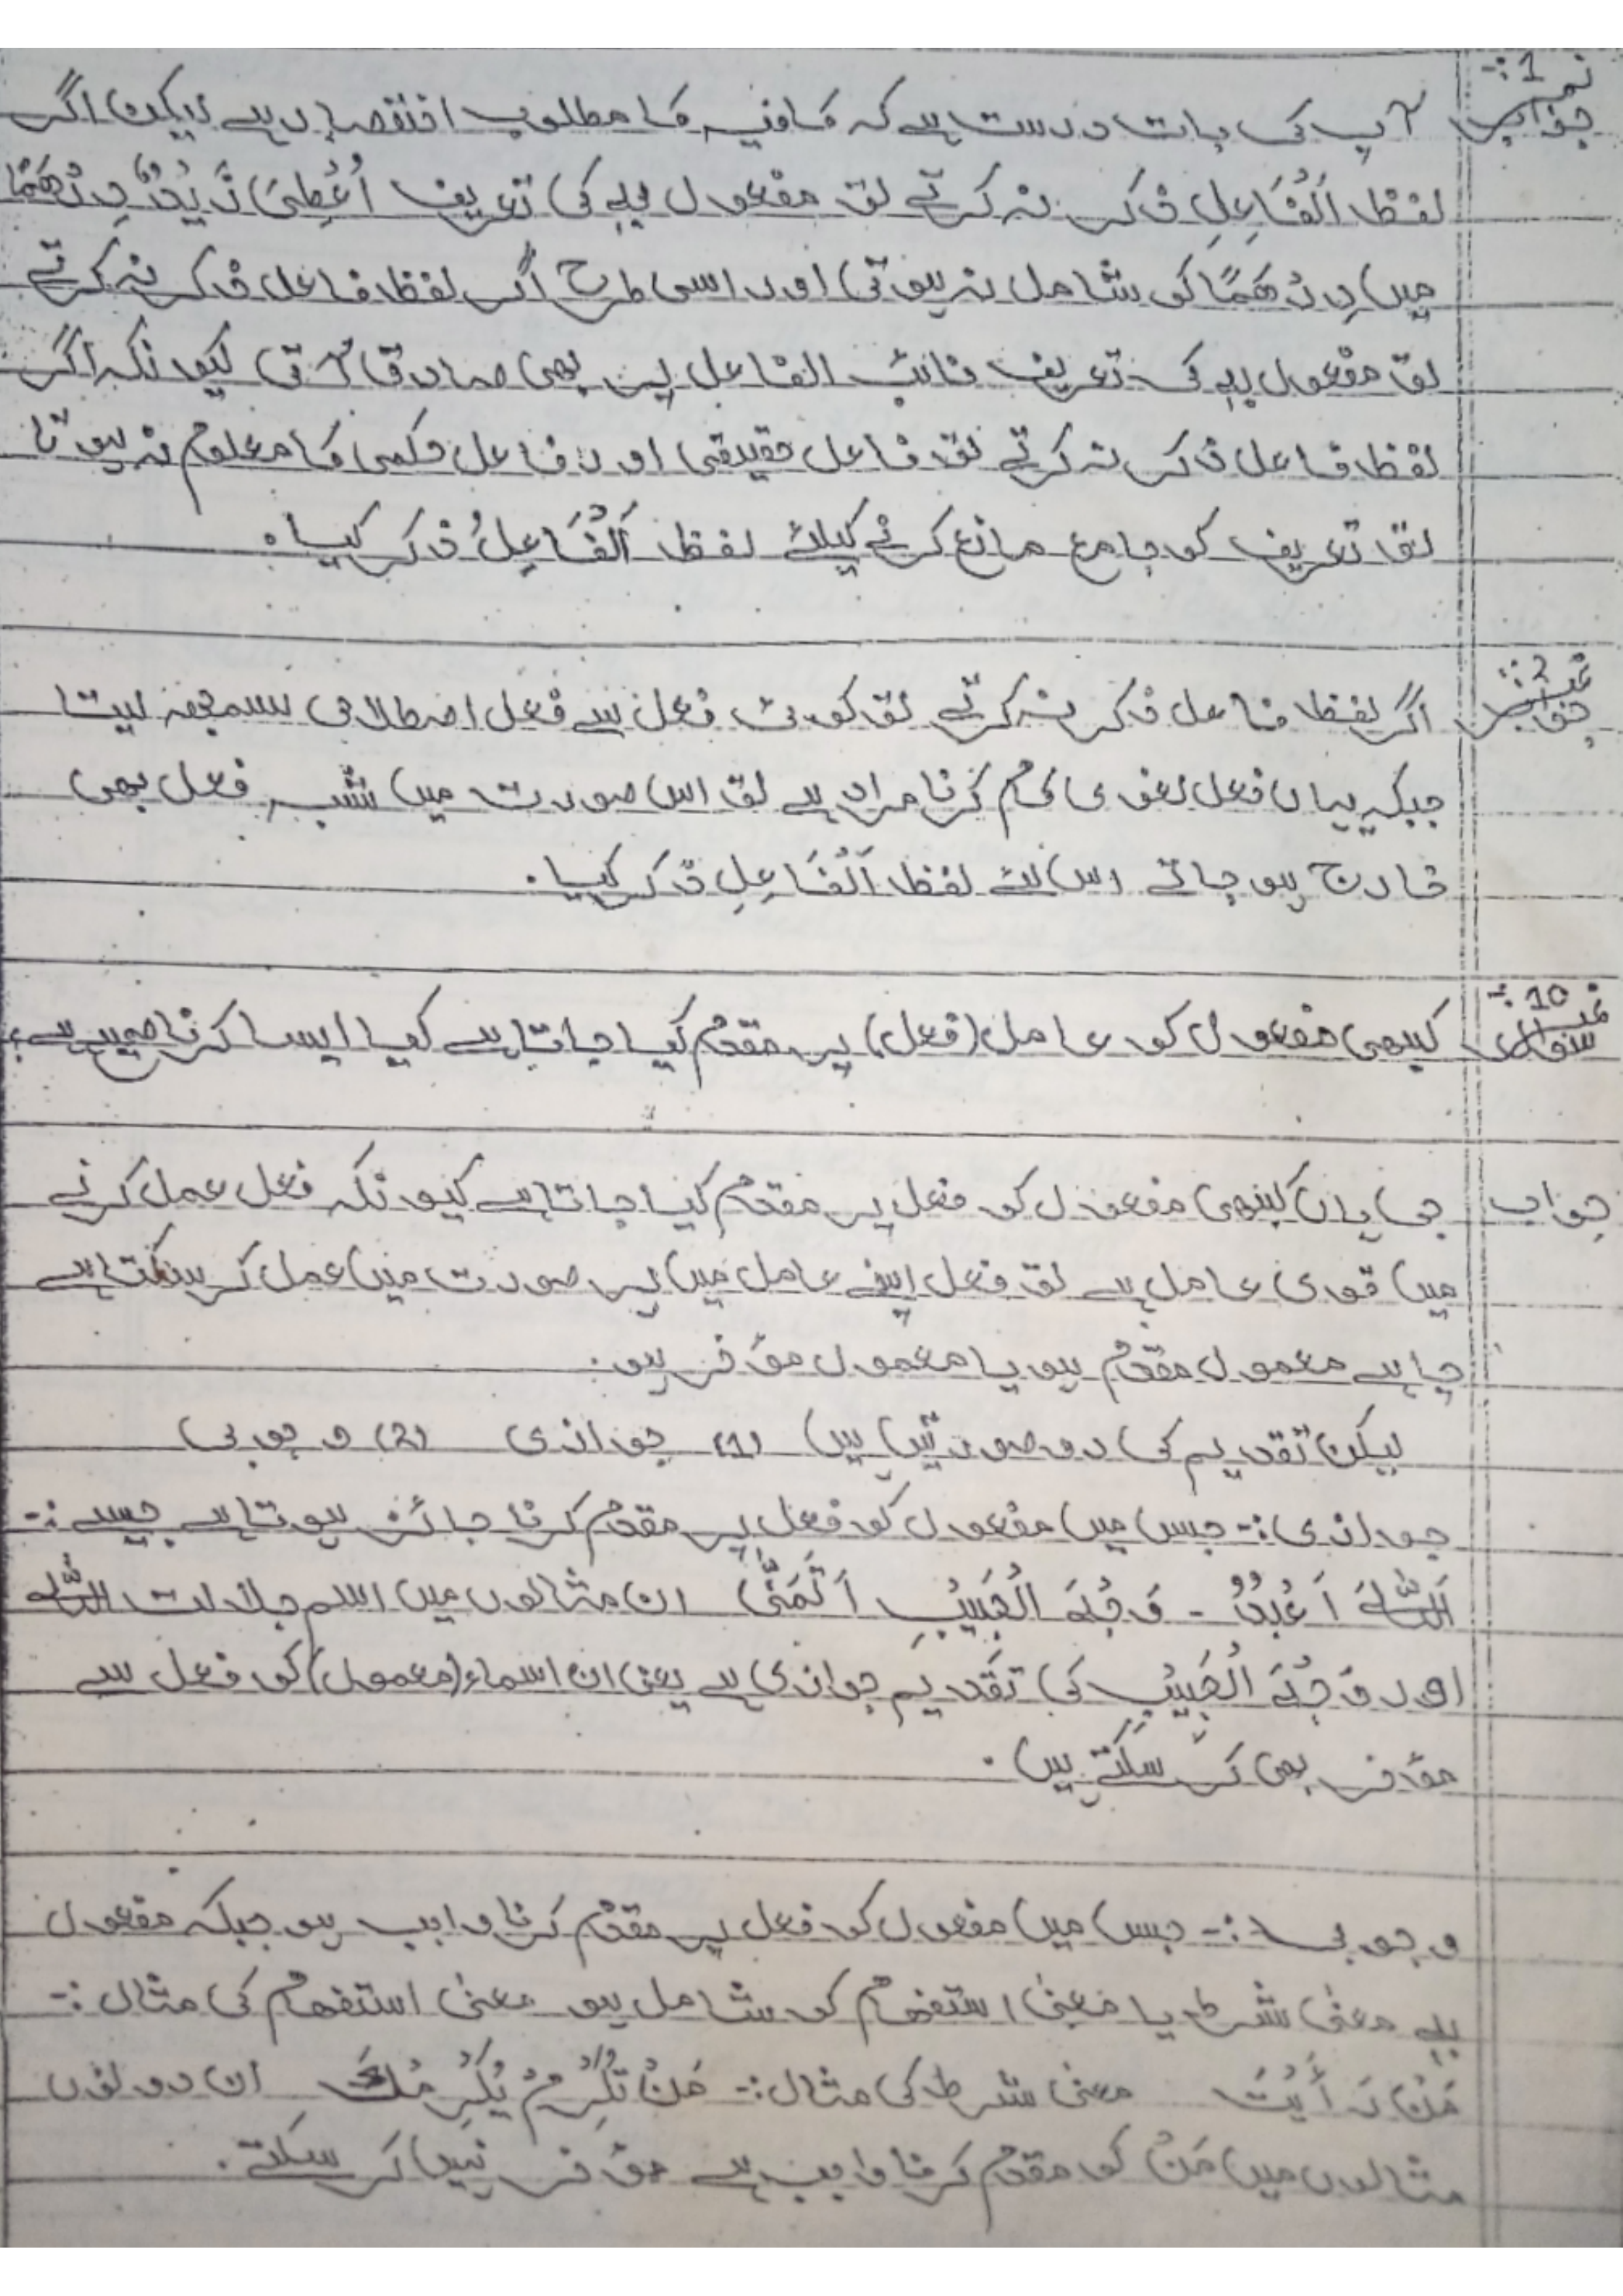 جواب نمبر 1:- آپ کی بات درست ہے کہ کافیہ کا مطلوب اختصار ہے لیکن اگر
لفظ اَلْفَاعِلِ ذکر نہ کرتے تو مفعول بہٖ کی تعریف اُعْطِیَ زَیْدٌ دِرْھَمًا
میں دِرْھَمًا کو شامل نہ ہوتی اور اسی طرح اگر لفظ فاعل ذکر نہ کرتے
تو مفعول بہٖ کی تعریف نائب الفاعل پر بھی صادق آتی کیونکہ اگر
لفظ فاعل ذکر نہ کرتے تو فاعل حقیقی اور فاعل حکمی کا معلوم نہ ہوتا
تو تعریف کو جامع مانع کرنے کیلئے لفظ اَلْفَاعِلُ ذکر کیا۔
جواب نمبر 2:- اگر لفظ فاعل ذکر نہ کرتے تو کوئی فعل سے فعل اصطلاحی سمجھ لیتا
جبکہ یہاں فعل لغوی کام کرنا مراد ہے تو اس صورت میں شبہ فعل بھی
خارج ہو جاتے اس لئے لفظ اَلْفَاعِلِ ذکر کیا۔
سوال نمبر 10:- کبھی مفعول کو عامل (فعل) پر مقدم کیا جاتا ہے کیا ایسا کرنا صحیح ہے؟
جواب جی ہاں کبھی مفعول کو فعل پر مقدم کیا جاتا ہے کیونکہ فعل عمل کرنے
میں قوی عامل ہے تو فعل اپنے عامل میں ہر صورت میں عمل کر سکتا ہے
چاہے معمول مقدم ہو یا معمول مؤخر ہو۔
لیکن تقدیم کی دو صورتیں ہیں (1) جوازی (2) وجوبی
جوازی:- جس میں مفعول کو فعل پر مقدم کرنا جائز ہوتا ہے جیسے:-
اَللّٰہَ اَعْبُدُ - وَجْہَ الْحَبِیْبِ اَتَمَنّٰی ان مثالوں میں اسم جلالت اللّٰہ
اور وَجْہَ الْحَبِیْبِ کی تقدیم جوازی ہے یعنی ان اسماء (معمول) کو فعل سے
مؤخر بھی کر سکتے ہیں۔
وجوبی:- جس میں مفعول کو فعل پر مقدم کرنا واجب ہو جبکہ مفعول
بہٖ معنیٰ شرط یا معنیٰ استفہام کو شامل ہو معنیٰ استفہام کی مثال:-
مَنْ رَأَیْتَ معنیٰ شرط کی مثال:- مَنْ تُکْرِمْ یُکْرِمْکَ ان دونوں
مثالوں میں مَنْ کو مقدم کرنا واجب ہے مؤخر نہیں کر سکتے۔